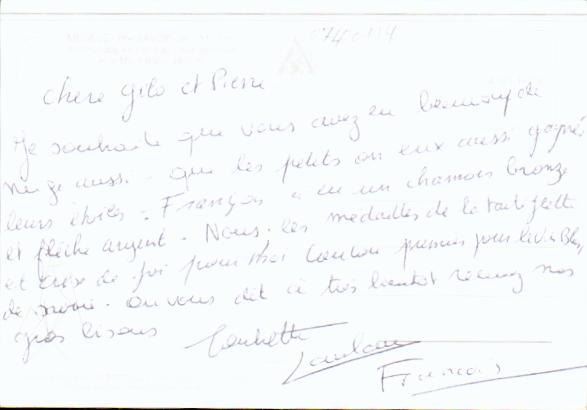 0740114
chere Gilo et Pierre
Je souhaite que vous avez eu beaucoup de
neige aussi - que les petits on eux aussi gagnés
leurs étoiles - François a eu un chamois bronze
et flèche argent. Nous les medailles de la tartiflette
et croix de foi pour moi Loulou premier pour le vin Blan
de Savoie. On vous dit à très bientot recevez nos
gros bisous
Loulou
François